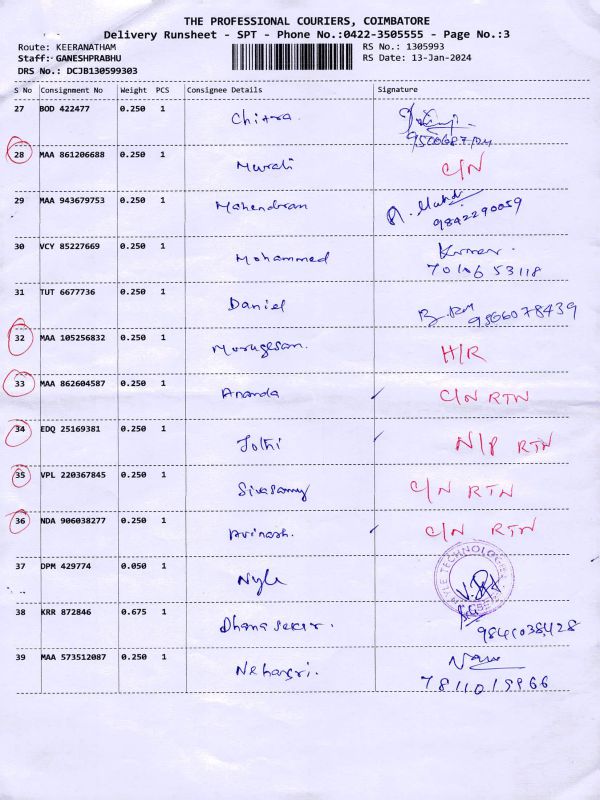 THE PROFESSIONAL COURIERS, COIMBATORE
Delivery Runsheet - SPT - Phone No.:0422-3505555 - Page No.:3
Route: KEERANATHAM RS No.: 1305993
Staff: GANESHPRABHU RS Date: 13-Jan-2024
DRS No.: DCJB130599303
S No Consignment No Weight PCS Consignee Details Signature
27 BOD 422477 0.250 1 Chitra
28 MAA 861206688 0.250 1 Murali C/N
29 MAA 943679753 0.250 1 Mahendran
9842290059
30 VCY 85227669 0.250 1 Mohammed Kumar
7010653118
31 TUT 6677736 0.250 1 Daniel
9566078439
32 MAA 105256832 0.250 1 Murugesan H/R
33 MAA 862604587 0.250 1 Ananda C/N RTN
34 EDQ 25169381 0.250 1 Jothi N/P RTN
35 VPL 220367845 0.250 1 Sivasamy C/N RTN
36 NDA 906038277 0.250 1 Avinash. C/N RTN
37 DPM 429774 0.050 1 Nyle
38 KRR 872846 0.675 1 Dhanasekar.
39 MAA 573512087 0.250 1 Nehasri.
7811015966